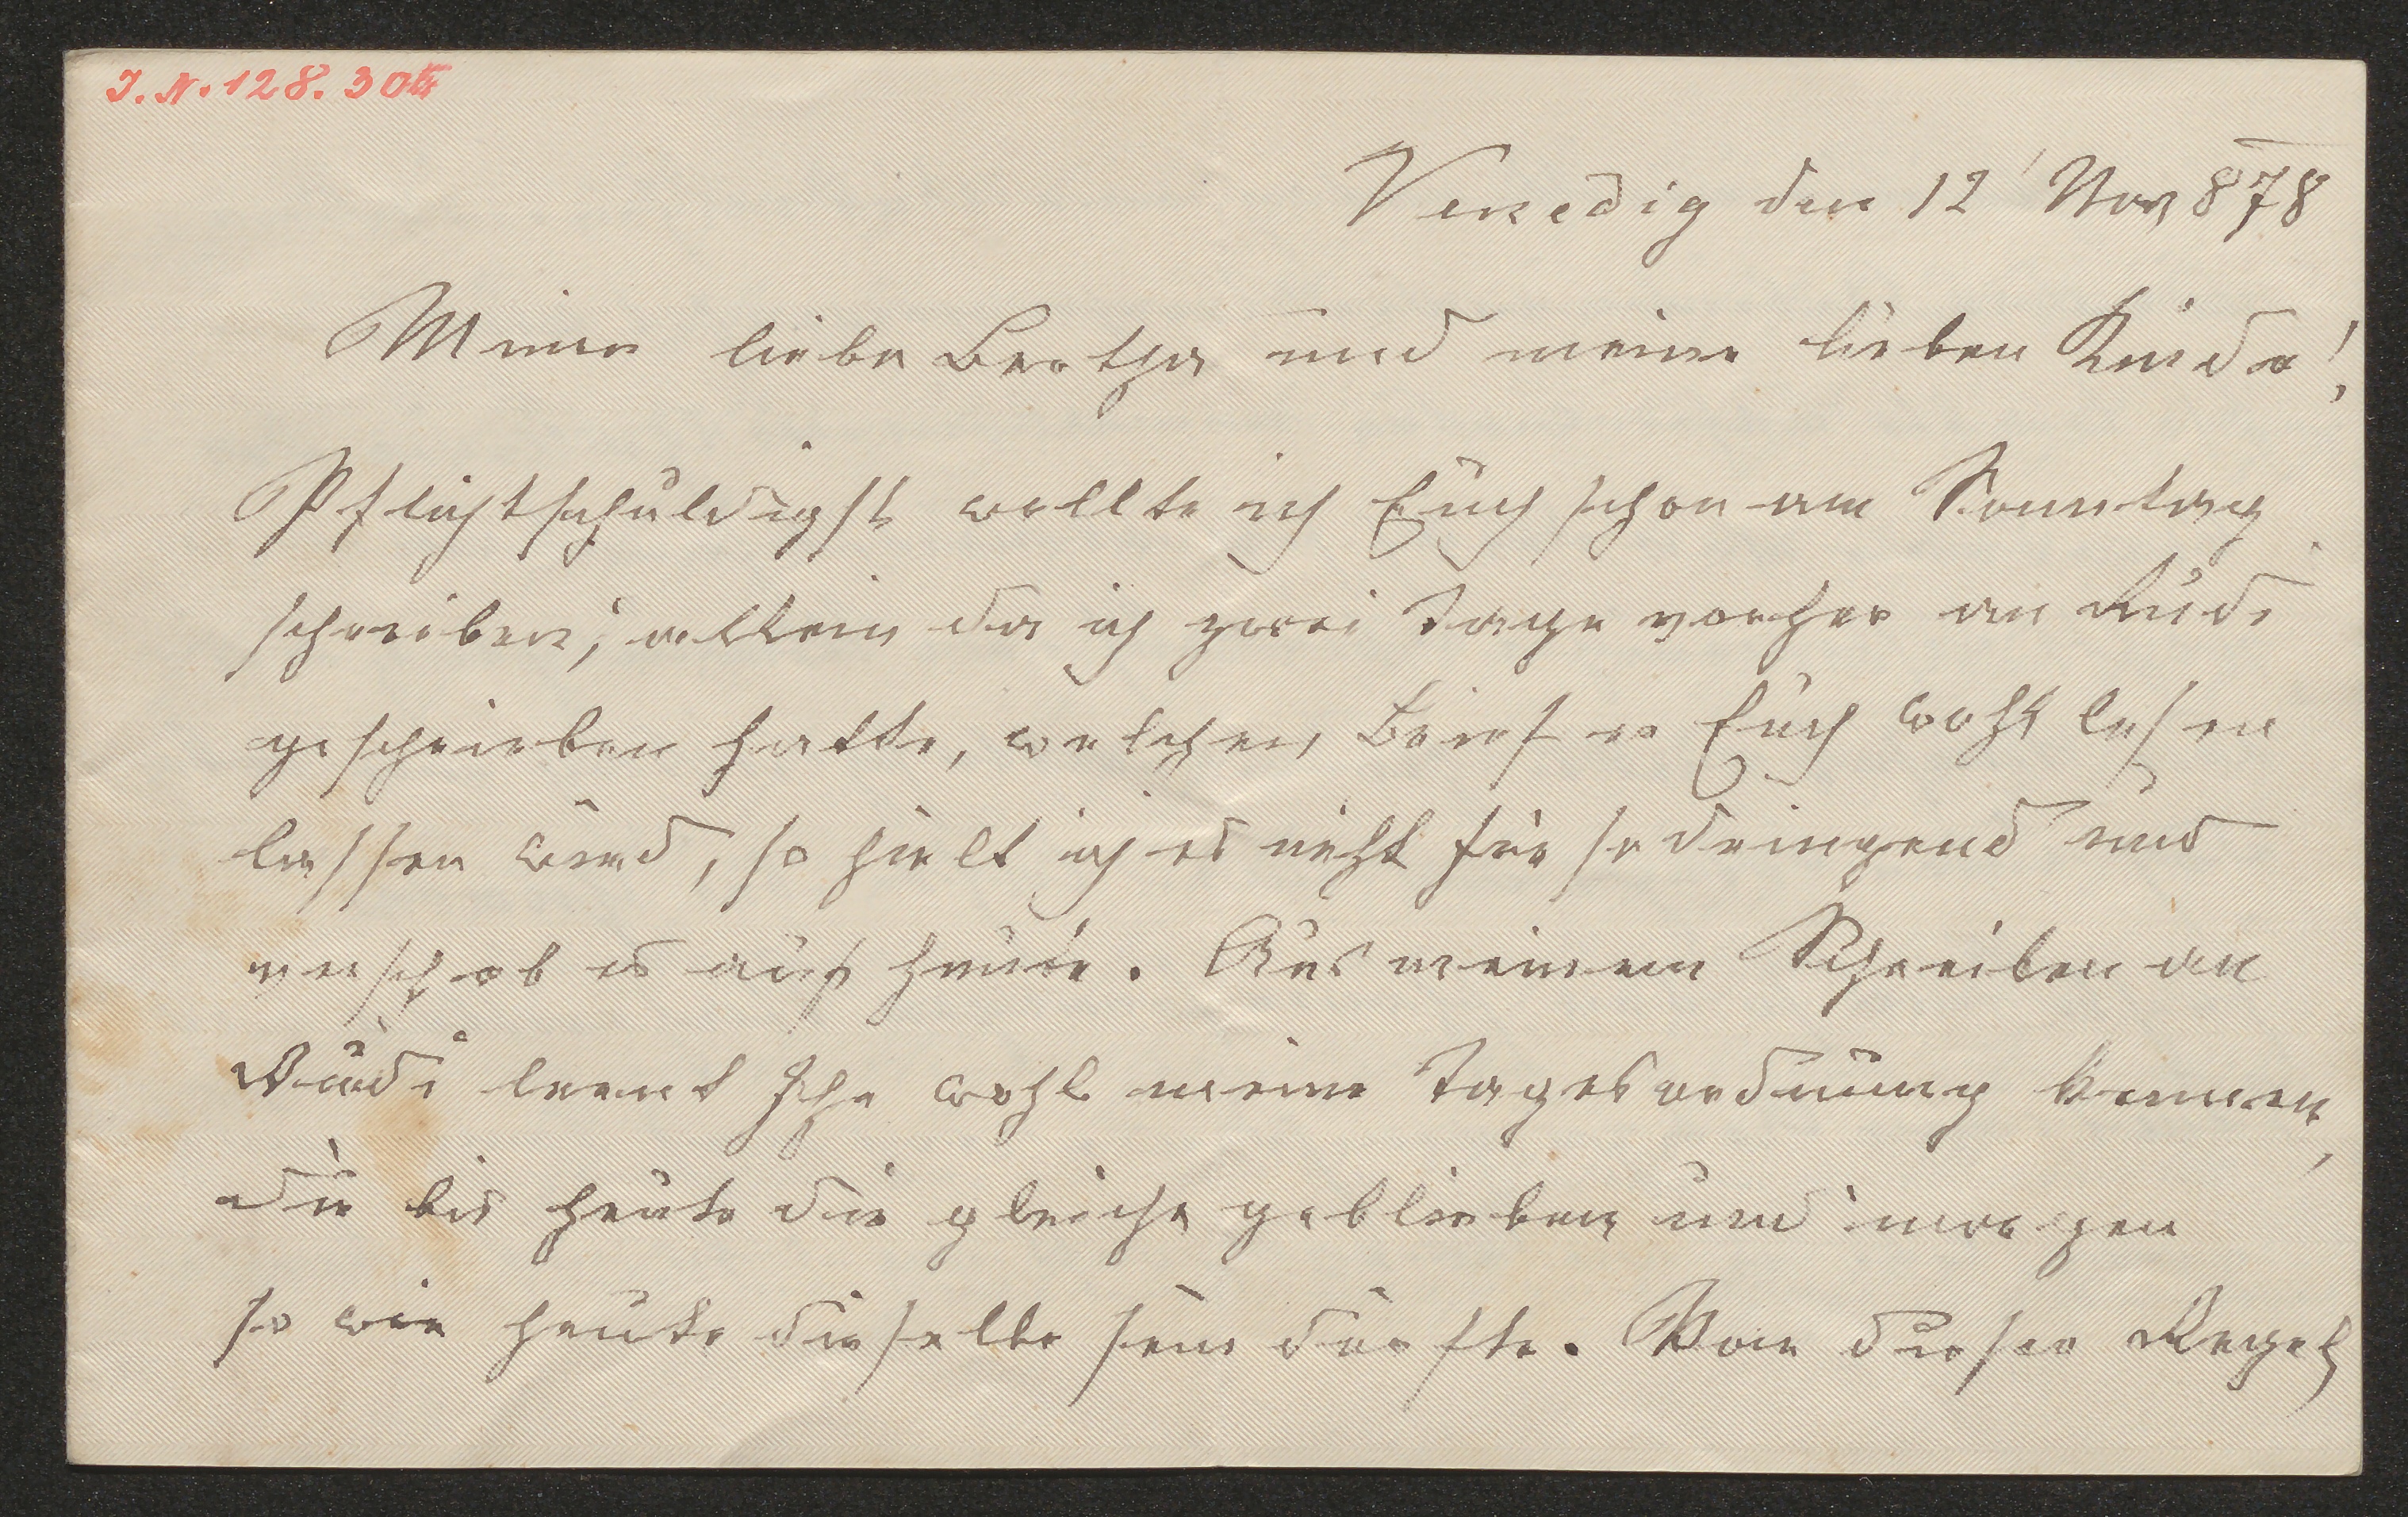 I. N. 128.304
Venedig den 12 Nov 878
Meine liebe Bertha und meine lieben Kinder!
Pflichtschuldigst wollte ich Euch schon am Sonntag
schreiben, allein da ich zwei Tage vorher an Rudi
geschrieben hatte, welchen Brief er Euch wohl lesen
lassen wird, so hielt ich es nicht für so dringend und
verschob es auf heute. Aus meinem Schreiben an
Rudi lernt Ihr wohl meine Tagesordnung kennen,
die bis heute die gleiche geblieben und morgen
so wie heute dieselbe sein dürfte. Von dieser Regel